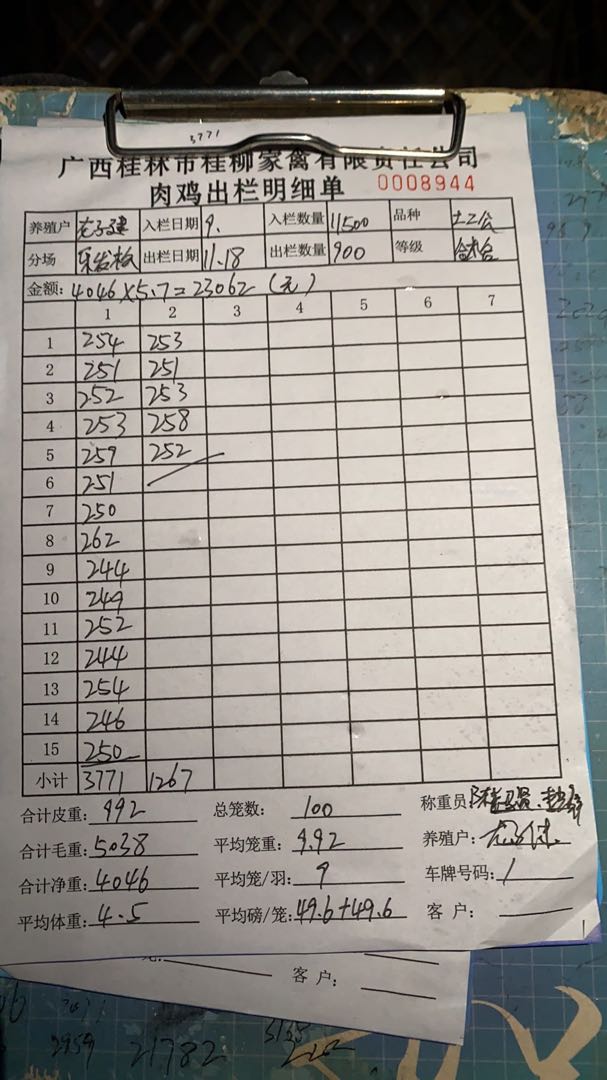 3771
广西桂林市桂柳家禽有限责任公司
肉鸡出栏明细单 0008944
养殖户 入栏日期 9. 入栏数量 11500 品种 土二公
分场 出栏日期 11.18 出栏数量 900 等级 合格
金额: 4046×5.7=23062 (元)
1 2 3 4 5 6 7
1 254 253
2 251 251
3 252 253
4 253 258
5 259 252
6 251
7 250
8 262
9 244
10 249
11 252
12 244
13 254
14 246
15 250
小计 3771 1267
合计皮重: 992 总笼数: 100 称重员:
合计毛重: 5038 平均笼重: 9.92 养殖户:
合计净重: 4046 平均笼/羽: 9 车牌号码: 1
平均体重: 4.5 平均磅/笼: 49.6+49.6 客 户:
客 户:
2959 21782